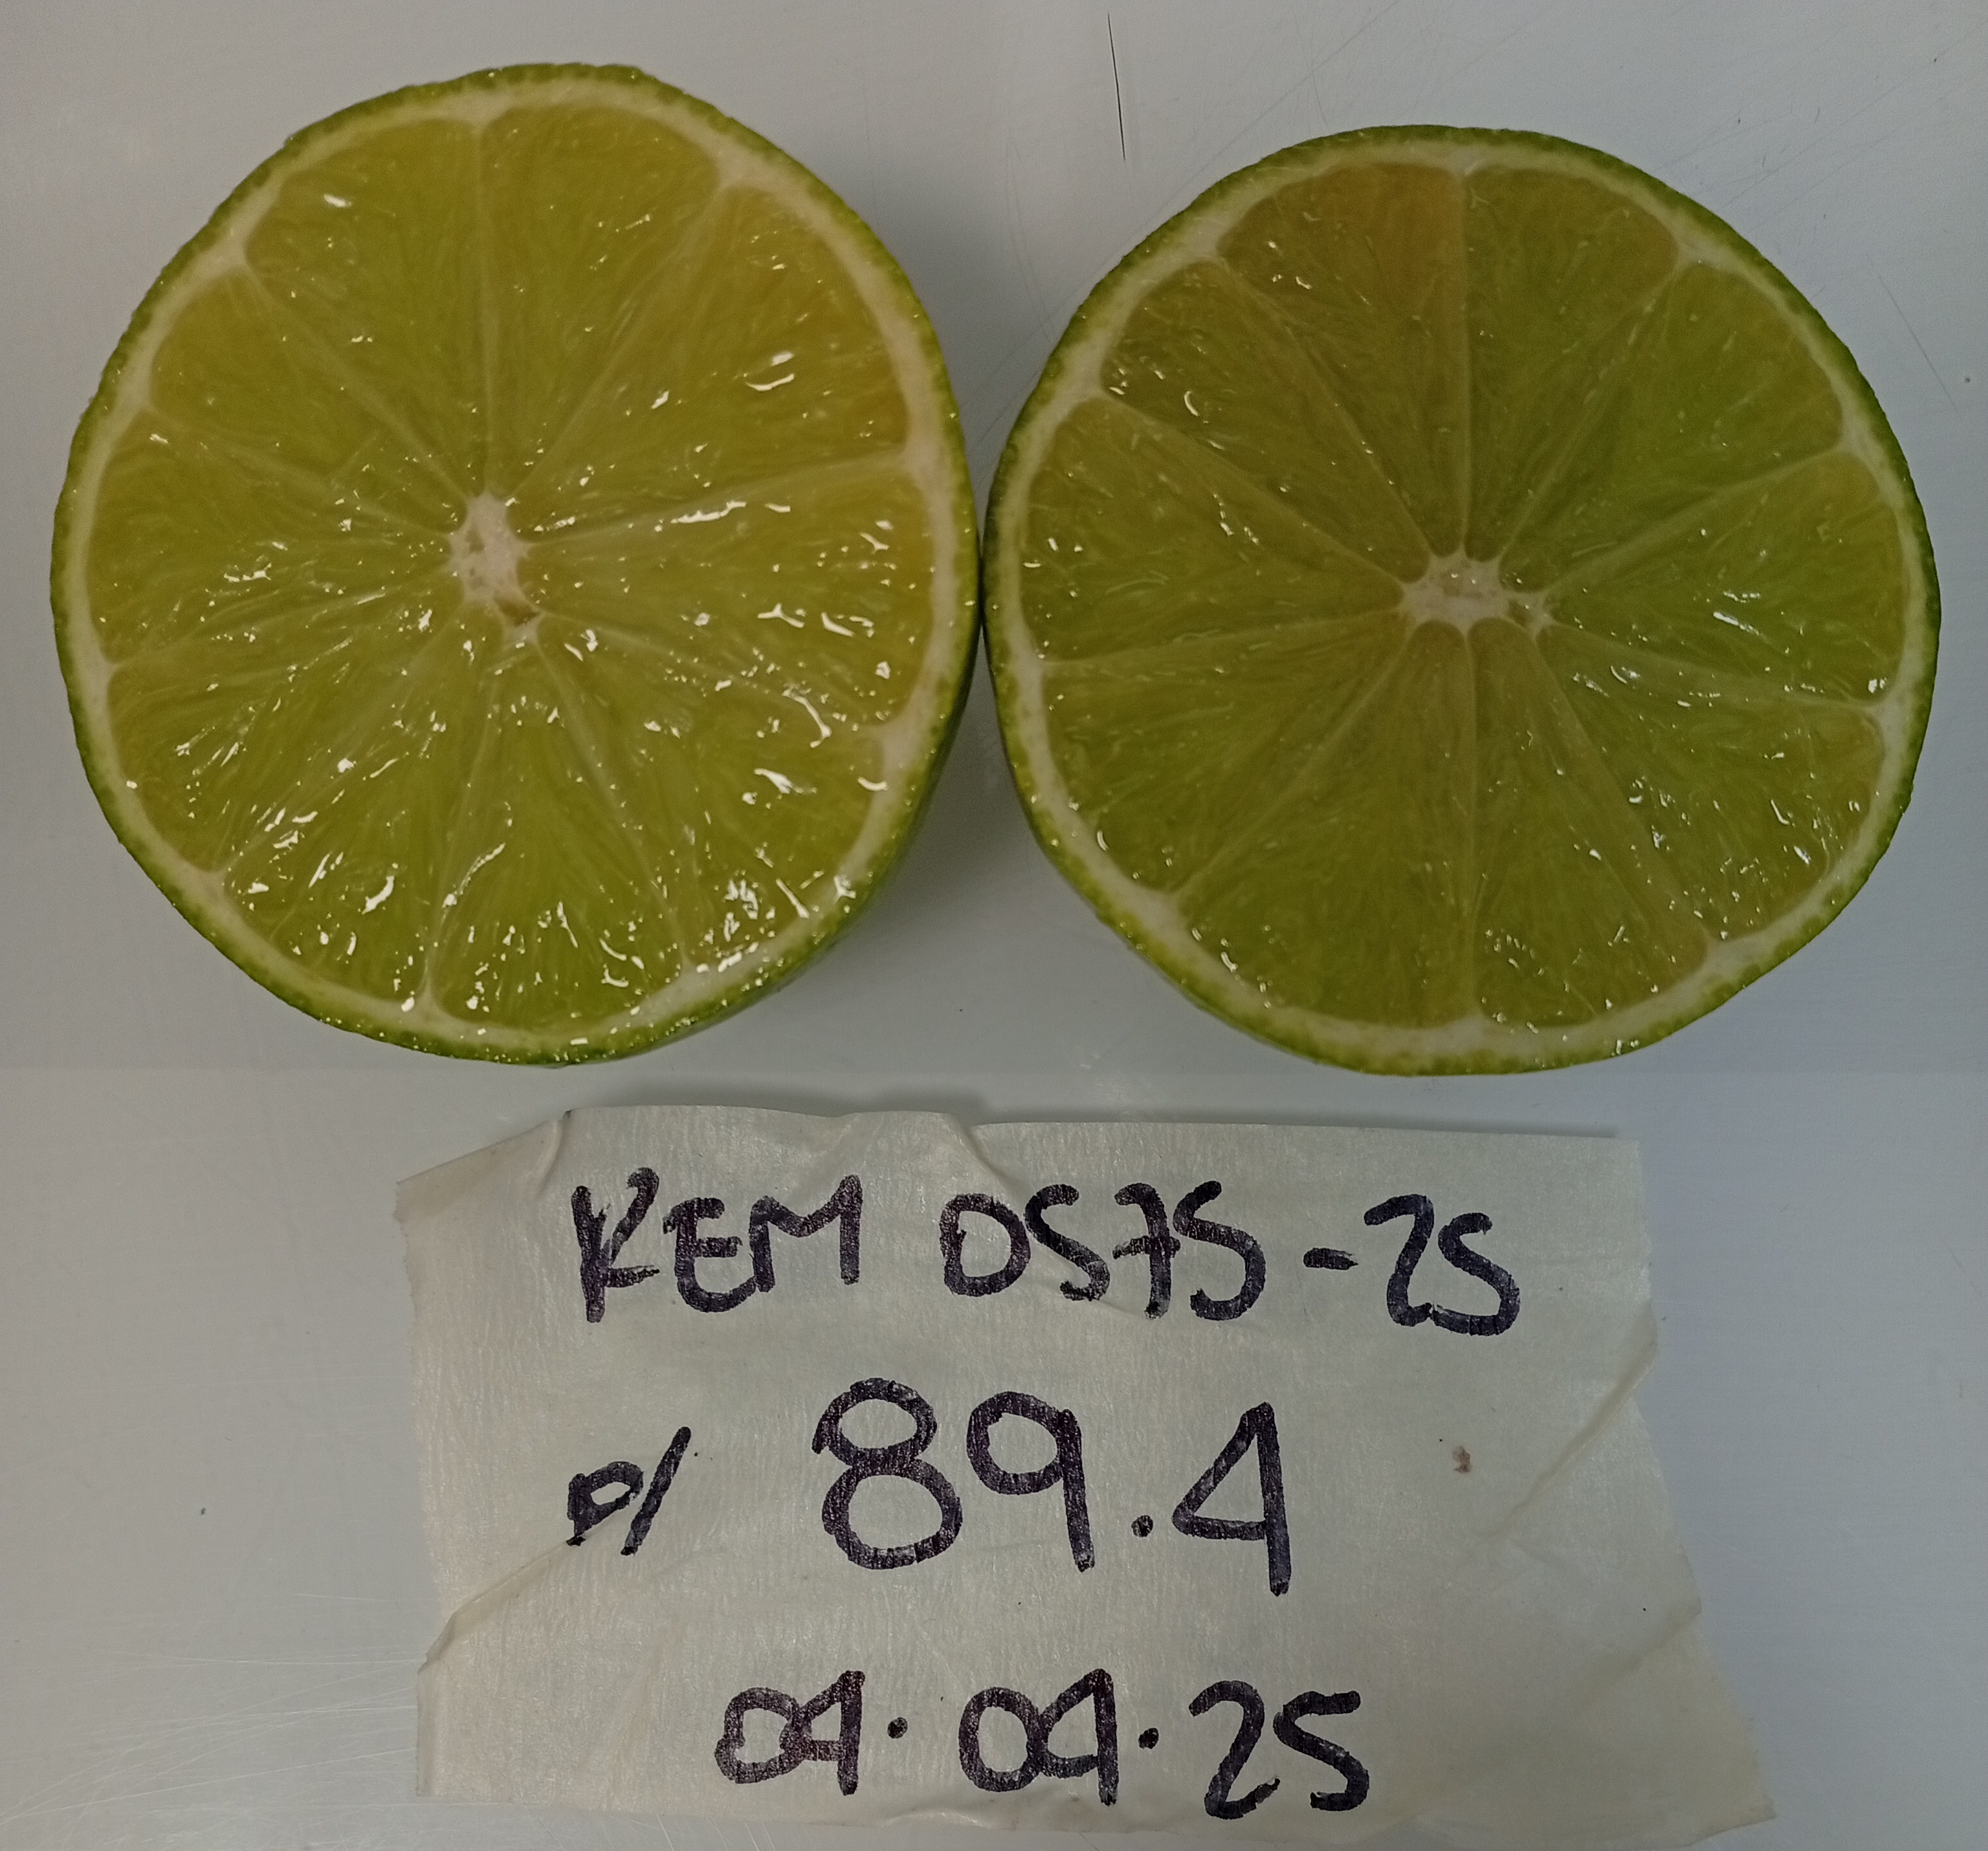 KEM 0575-25
P/ 89.4
04.04.25